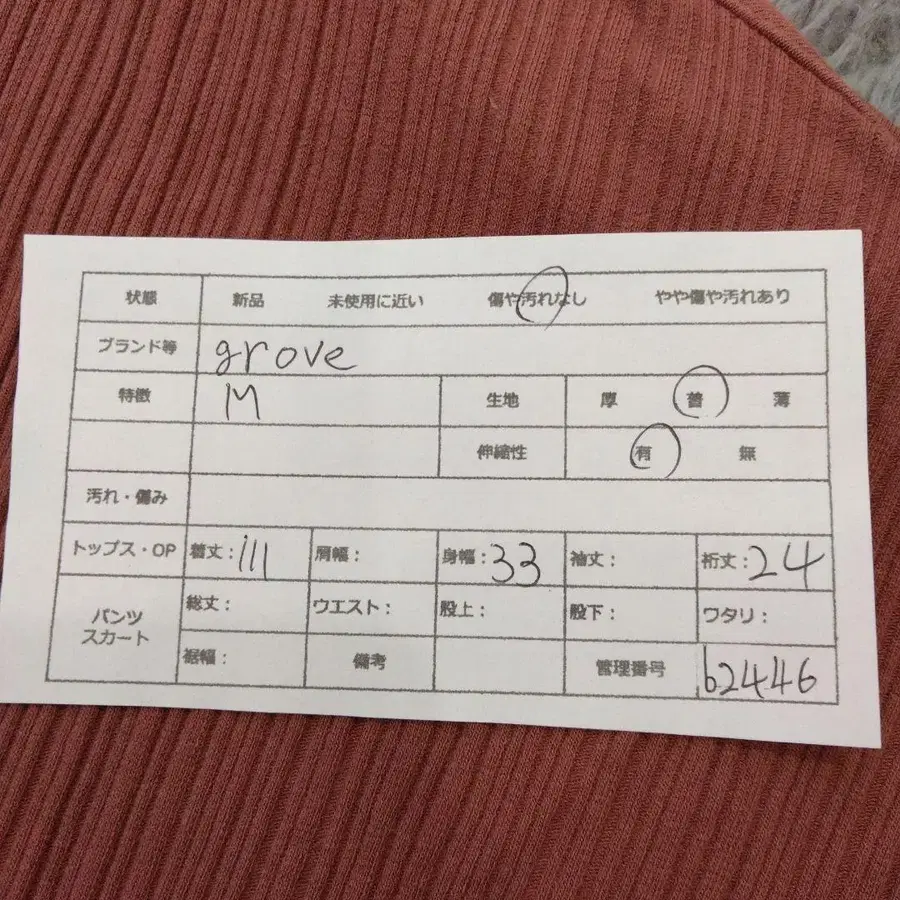 状態 新品 未使用に近い 傷や汚れなし やや傷や汚れあり
ブランド等 grove
特徴 M 生地 厚 普 薄
伸縮性 有 無
汚れ・傷み
トップス・OP 着丈：111 肩幅： 身幅：33 袖丈： 裄丈：24
パンツ
スカート
総丈： ウエスト： 股上： 股下： ワタリ：
裾幅： 備考 管理番号 b2446